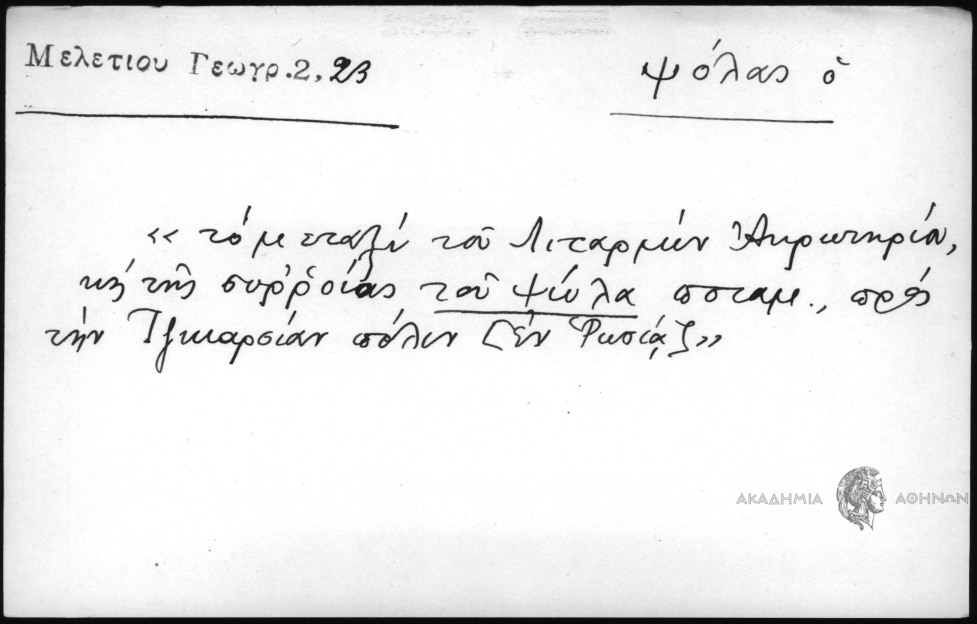 Μελετίου Γεωγρ. 2, 23
ψόλας ὁ
« τό μεταξύ τοῦ Λιταρμών Ἀκρωτηρίου,
κ τῆς συῤῥοίας τοῦ ψόλα ποταμ., πρός
τήν Τζικαρσίαν πόλιν [ἐν Ῥωσίᾳ] »
ΑΚΑΔΗΜΙΑ ΑΘΗΝΩΝ